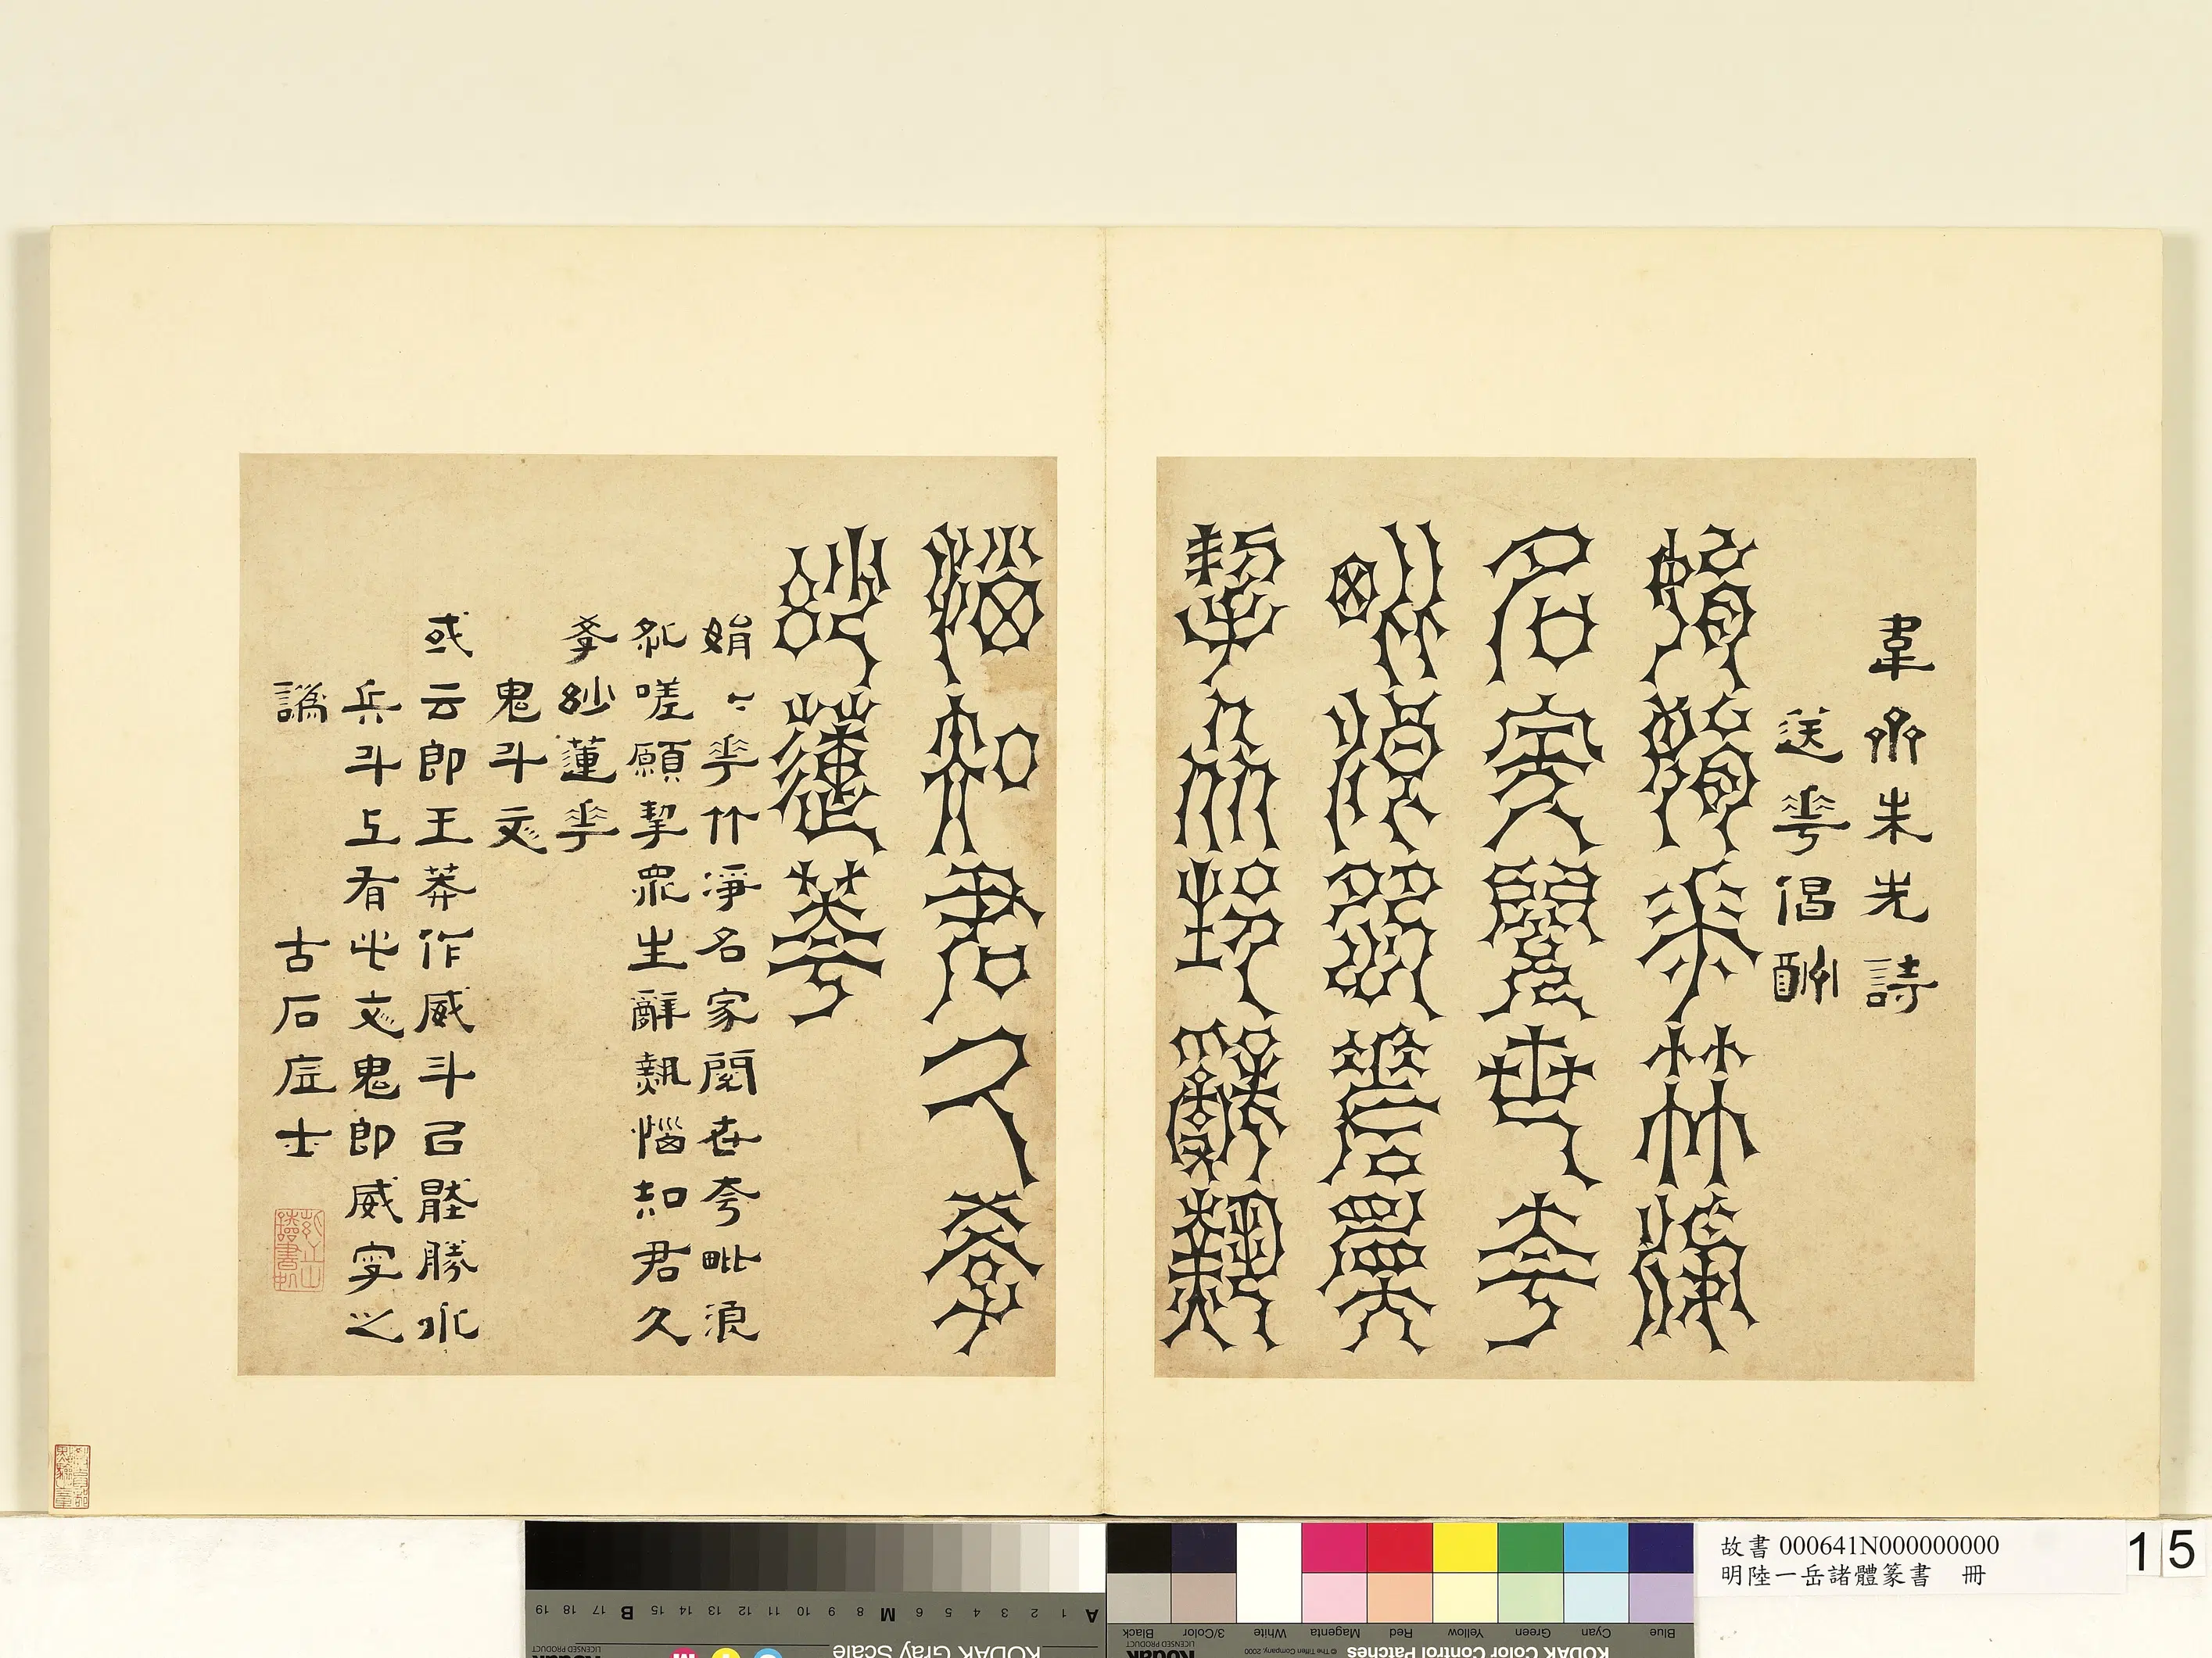 韋齋朱先詩
送華倡酬
娟娟華竹淨
名家閱世夸
毗浪紛嗟願
挈眾生辭熱
惱知君久學
妙蓮華
娟〻華竹淨名家閱世夸毗浪
紛嗟願挈眾生辭熱惱知君久
學妙蓮華
鬼斗文
或云即王莽作威斗㠯勝水
兵斗上有此文鬼即威字之
譌
古石士
故書 000641N000000000
明陸一岳諸體篆書 冊
15
KODAK Gray Scale
A 1 2 3 4 5 6 M 8 9 10 11 12 13 14 15 B 17 18 19
KODAK Color Control Patches
Blue Cyan Green Yellow Red Magenta White 3/Color Black